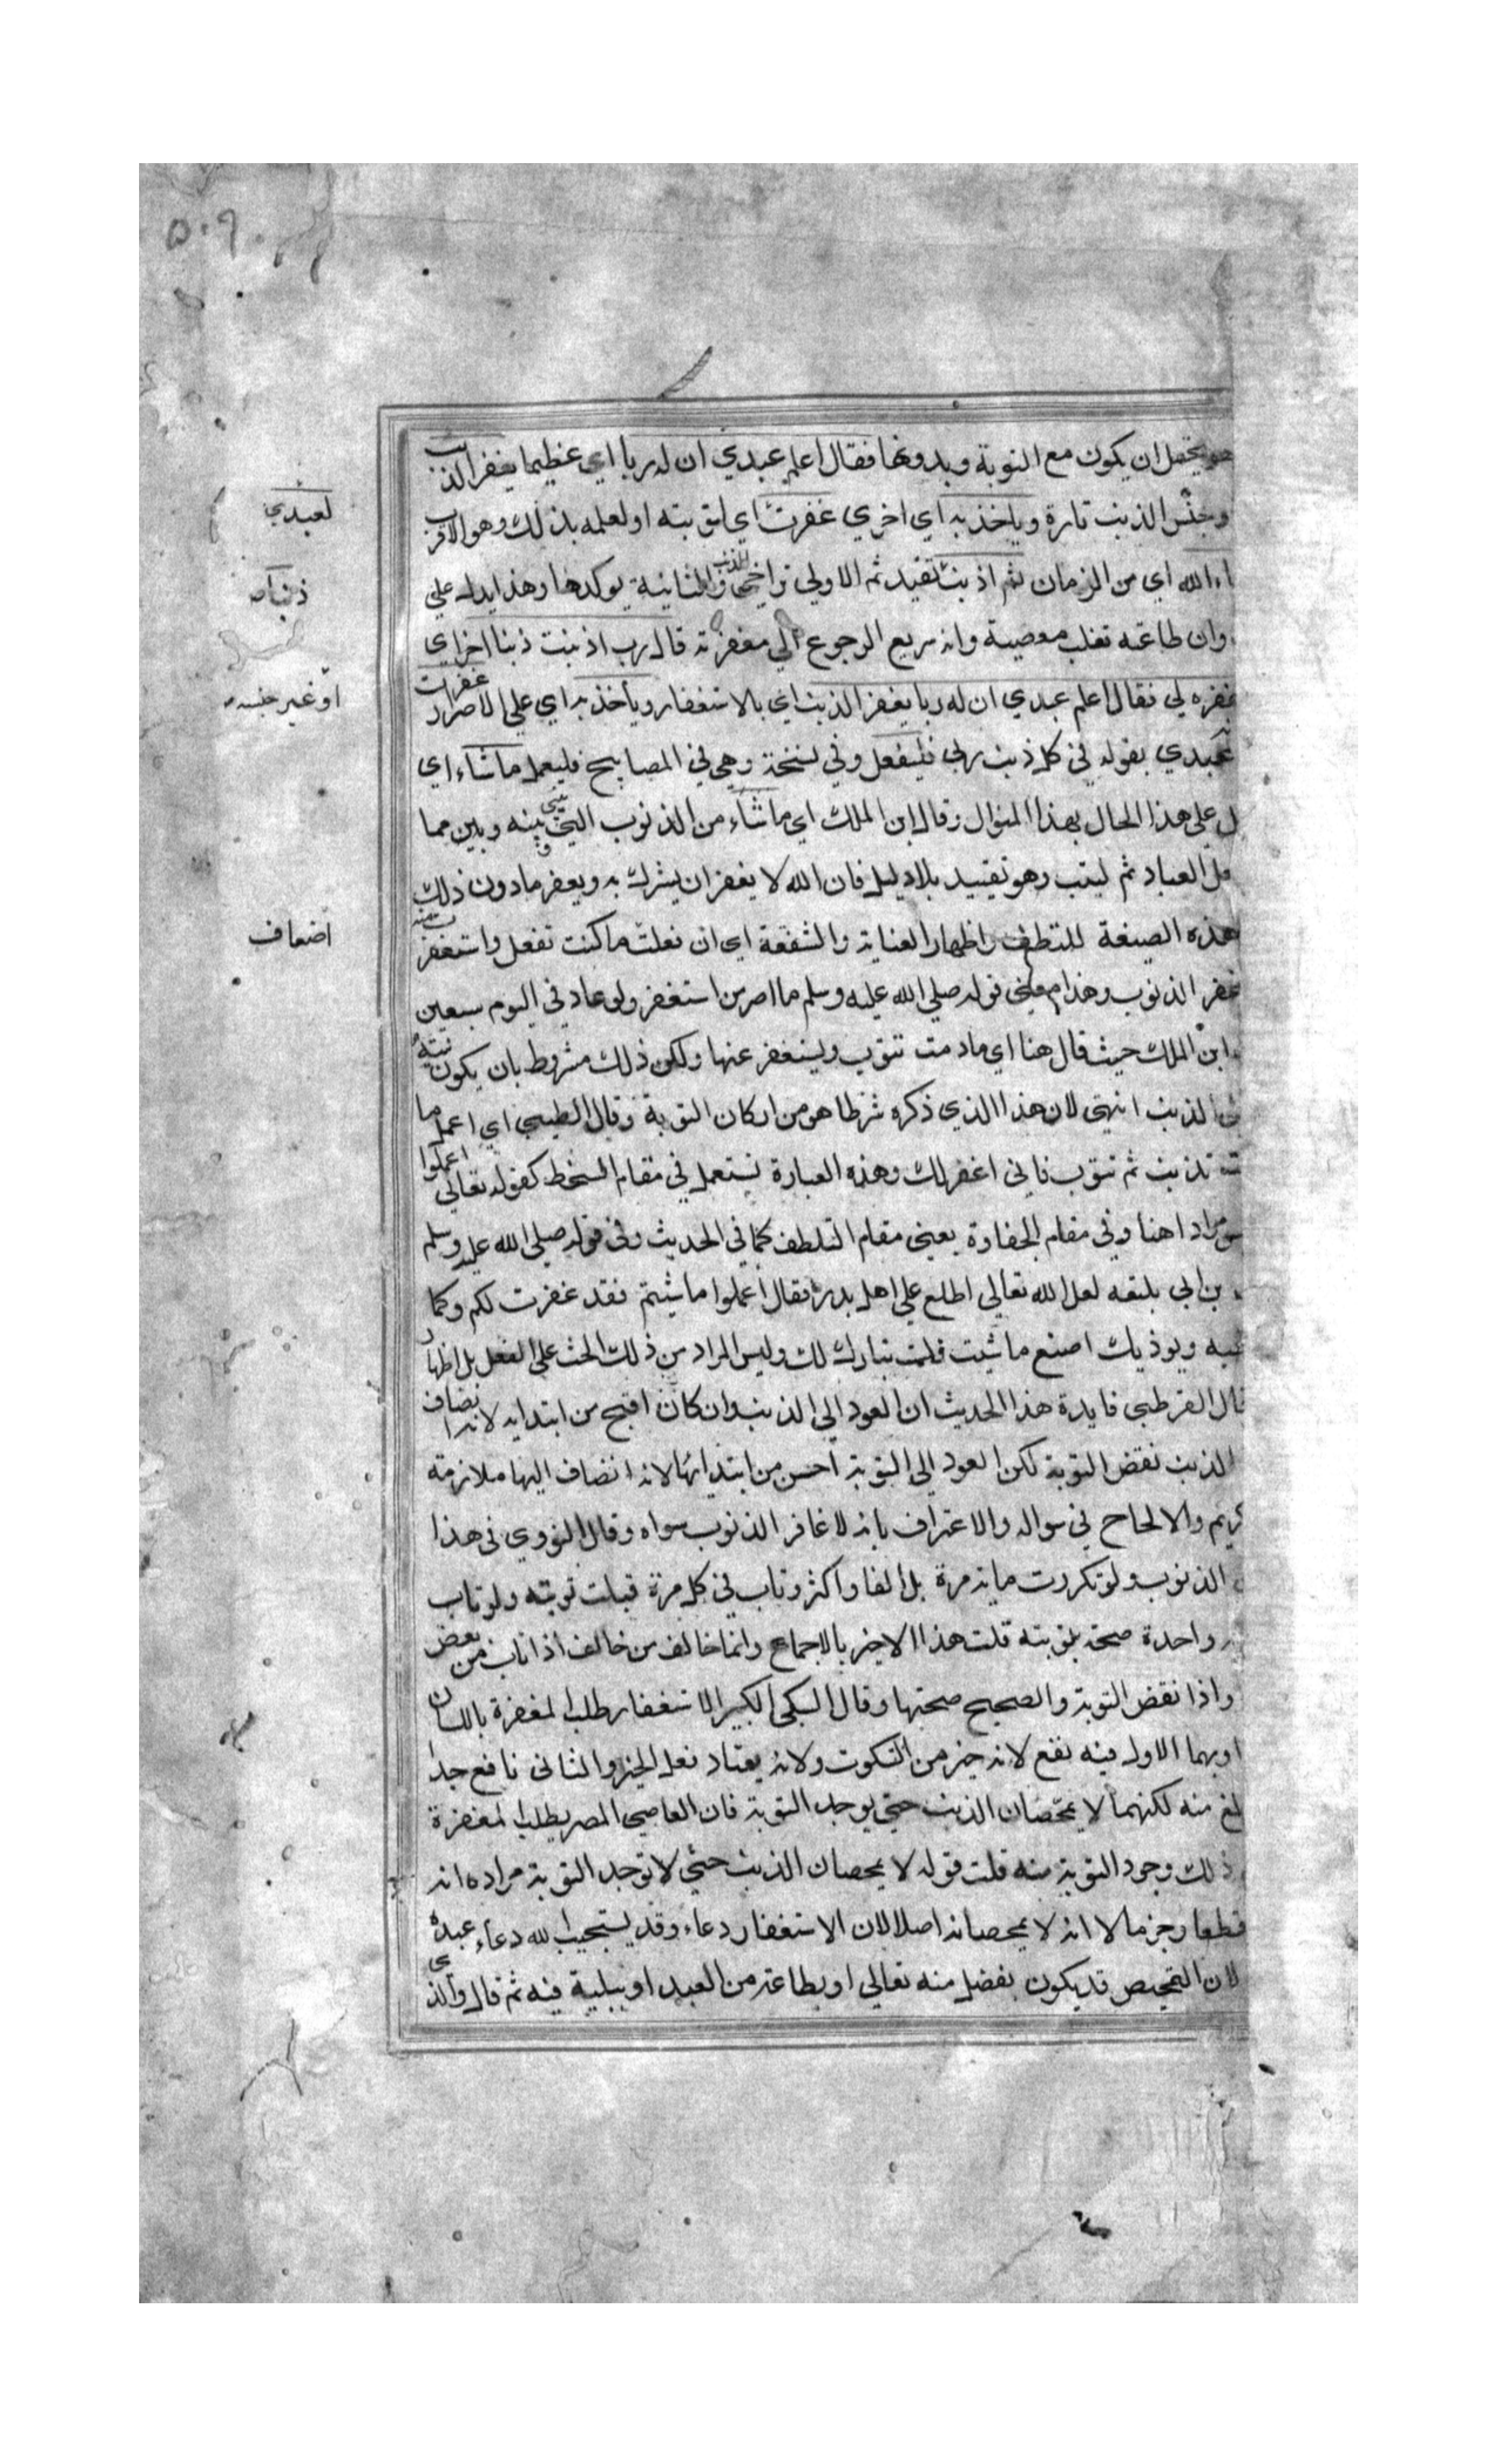 ٥٠٩
هو يحتمل ان يكون مع التوبة وبدونها فقال اعلم عبدي ان له ربا اي عظيما يغفر الذنب
وجنس الذنب تارة وياخذ به اي اخري غفرت اي توبته او لعلمه بذلك وهو الاقرب
لعبدي
اء الله اي من الزمان ثم اذنبت تفيد ثم الاولي تراخي الذنب والثانية يوكدها وهذا يدل علي
ذنبا
وان طاعته تغلب معصيته وانه سريع الرجوع الي مغفرته قال رب اذنبت ذنبا اخر اي
او غير جنسه
غفره لي فقال اعلم عبدي ان له ربا يغفر الذنب اي بالاستغفار ويأخذ به اي علي الاصرار غفرت
لعبدي بقوله في كل ذنب ربي فليفعل وفي نسخة وهي في المصابيح فليعمل ما شاء اي
ل علي هذا الحال بهذا المنوال وقال ابن الملك اي ما شاء من الذنوب التي بيني وبينه وبين مما
مل العباد ثم ليتب وهو تقييد بلا دليل فان الله لا يغفر ان يشرك به ويغفر ما دون ذلك
هذه الصيغة للتلطف واظهار العناية والشفقة اي ان فعلت ما كنت تفعل واستغفرت منه
اضعاف
غفر الذنوب وهذا معني قوله صلي الله عليه وسلم ما اصر من استغفر ولو عاد في اليوم سبعين
ابن الملك حيث قال هنا اي ما دمت تتوب وتستغفر عنها ولكن ذلك مشروط بان يكون نيته
الذنب انتهي لان هذا الذي ذكره شرطا هو من اركان التوبة وقال الطيبي اي اعمل ما
تذنب ثم تتوب فاني اغفر لك وهذه العبارة تستعمل في مقام السخط كقوله تعالي اعملوا
س مرادا هنا وفي مقام الحفاوة يعني مقام التلطف كما في الحديث وفي قوله صلي الله عليه وسلم
بن ابي بلتعه لعل الله تعالي اطلع علي اهل بدر فقال اعملوا ما شئتم فقد غفرت لكم وكما
ويوذيك اصنع ما شيت فلست بتارك لك وليس المراد من ذلك الحث علي الفعل بل اظهار
قال القرطبي فايدة هذا الحديث ان العود الي الذنب وان كان اقبح من ابتدايه لانه انضاف
الذنب نقض التوبة لكن العود الي التوبة احسن من ابتدائها لانه انضاف اليها ملازمة
كريم والالحاح في سواله والاعتراف بانه لا غافر الذنوب سواه وقال النووي في هذا
الذنوب ولو تكررت ماية مرة بل الفا واكثر وتاب في كل مرة قبلت توبته ولو تاب
واحدة صحة بتوبته قلت هذا الاخير بالاجماع وانما خالف من خالف اذا تاب من بعض
واذا نقض التوبة والصحيح صحتها وقال السبكي الكبير الاستغفار طلب المغفرة باللسان
او بهما الاول فيه نفع لانه خير من السكوت ولانه يعتاد فعل الخير والثاني نافع جدا
لغ منه لكنهما لا يمحصان الذنب حتي يوجد التوبة فان العاصي المصر يطلب المغفرة
ذلك وجود التوبة منه قلت قوله لا يمحصان الذنب حتي لا توجد التوبة مراده انه
قطعا وجزما لا انه لا يمحصانه اصلا لان الاستغفار دعاء وقد يستجيب الله دعاء عبده
لان التمحيص قد يكون بفضل منه تعالي او بطاعة من العبد او ببلية فيه ثم قال والذي